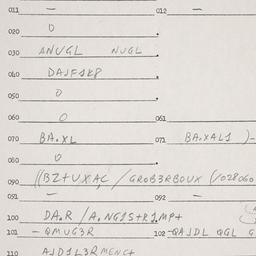 011 — 012 —
020 0
030 ANUGL NUGL
040 DAJF1K8
050 0
060 0 061
070 BA.XL 071 BA.XALI )-
080 0
090 ((BZ+UXAC / GROB3RBOUX (/028060
091 — 092 —
100 DA.R / A.NG1S+R1MP+
101 - QMUG3R 102 -QAJDL QGL G
110 AJD1L3RMENC+